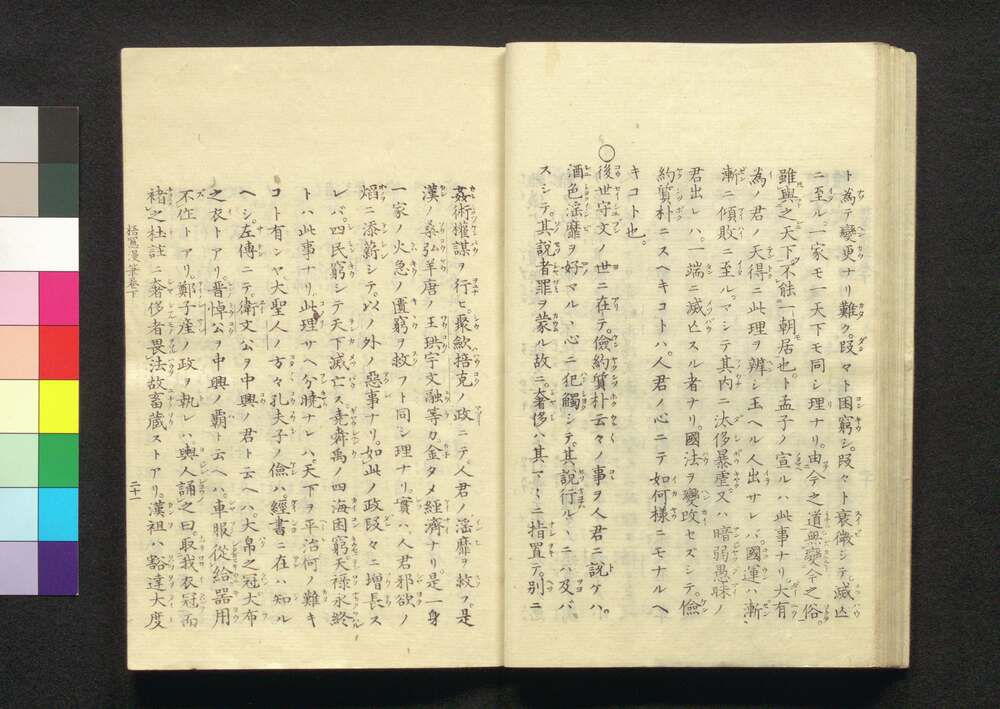 ト為テ變更ナリ難ク。段々ト困窮シ。段々ト衰微シテ。滅亡
ニ至ル。一家モ一天下モ同シ理ナリ。由今之道無變今之俗。
雖與之天下。不能一朝居也。ト孟子ノ宣ルハ此事ナリ。大有
為ノ君ノ天得ニ此理ヲ辨シ玉ヘル人出サレバ。國運ハ漸
漸ニ傾敗ニ至ル。マシテ其内ニ汰侈暴虐。又ハ暗弱愚昧ノ
君出レハ。一端ニ滅亡スル者ナリ。國法ヲ變改セズシテ。儉
約質朴ニスヘキコトハ。人君ノ心ニテ如何様ニモナルヘ
キコト也。
○後世守文ノ世ニ在テ。儉約質朴云々ノ事ヲ人君ニ説ケハ。
酒色淫靡ヲ好マル丶心ニ犯觸シテ。其説行ル丶ニハ及バ
スシテ。其説者罪ヲ蒙ル故ニ。奢侈ハ其マ丶ニ措置テ。別ニ
姦術權謀ヲ行ヒ。聚歛掊克ノ政ニテ。人君ノ淫靡ヲ救フ。是
漢ノ桑弘羊唐ノ王珙宇文融等カ金タメ經濟ナリ。是一身
一家ノ火急ノ匱窮ヲ救フト同シ理ナリ。實ハ人君邪欲ノ
熖ニ添薪シテ。以ノ外ノ惡事ナリ。如此ノ政段々ニ増長ス
レバ。四民窮シテ天下滅亡ス。堯舜禹ノ四海困窮天禄永終
トハ此事ナリ。此理サヘ分曉ナレハ。天下ヲ平治何ノ難キ
コト有ンヤ。大聖人ノ方々孔夫子ノ儉ハ。經書ニ在ハ知ル
ヘシ。左傳ニテ。衛文公ヲ中興ノ君ト云ヘハ。大帛之冠大布
之衣トアリ。晋悼公ヲ中興ノ覇ト云ヘハ。車服從給器用
不作トアリ。鄭子産ノ政ヲ執レハ。輿人誦之曰取我衣冠而
褚之杜註ニ奢侈者畏法故畜藏ストアリ。漢祖ハ豁達大度
括嚢漫筆巻下
二十一